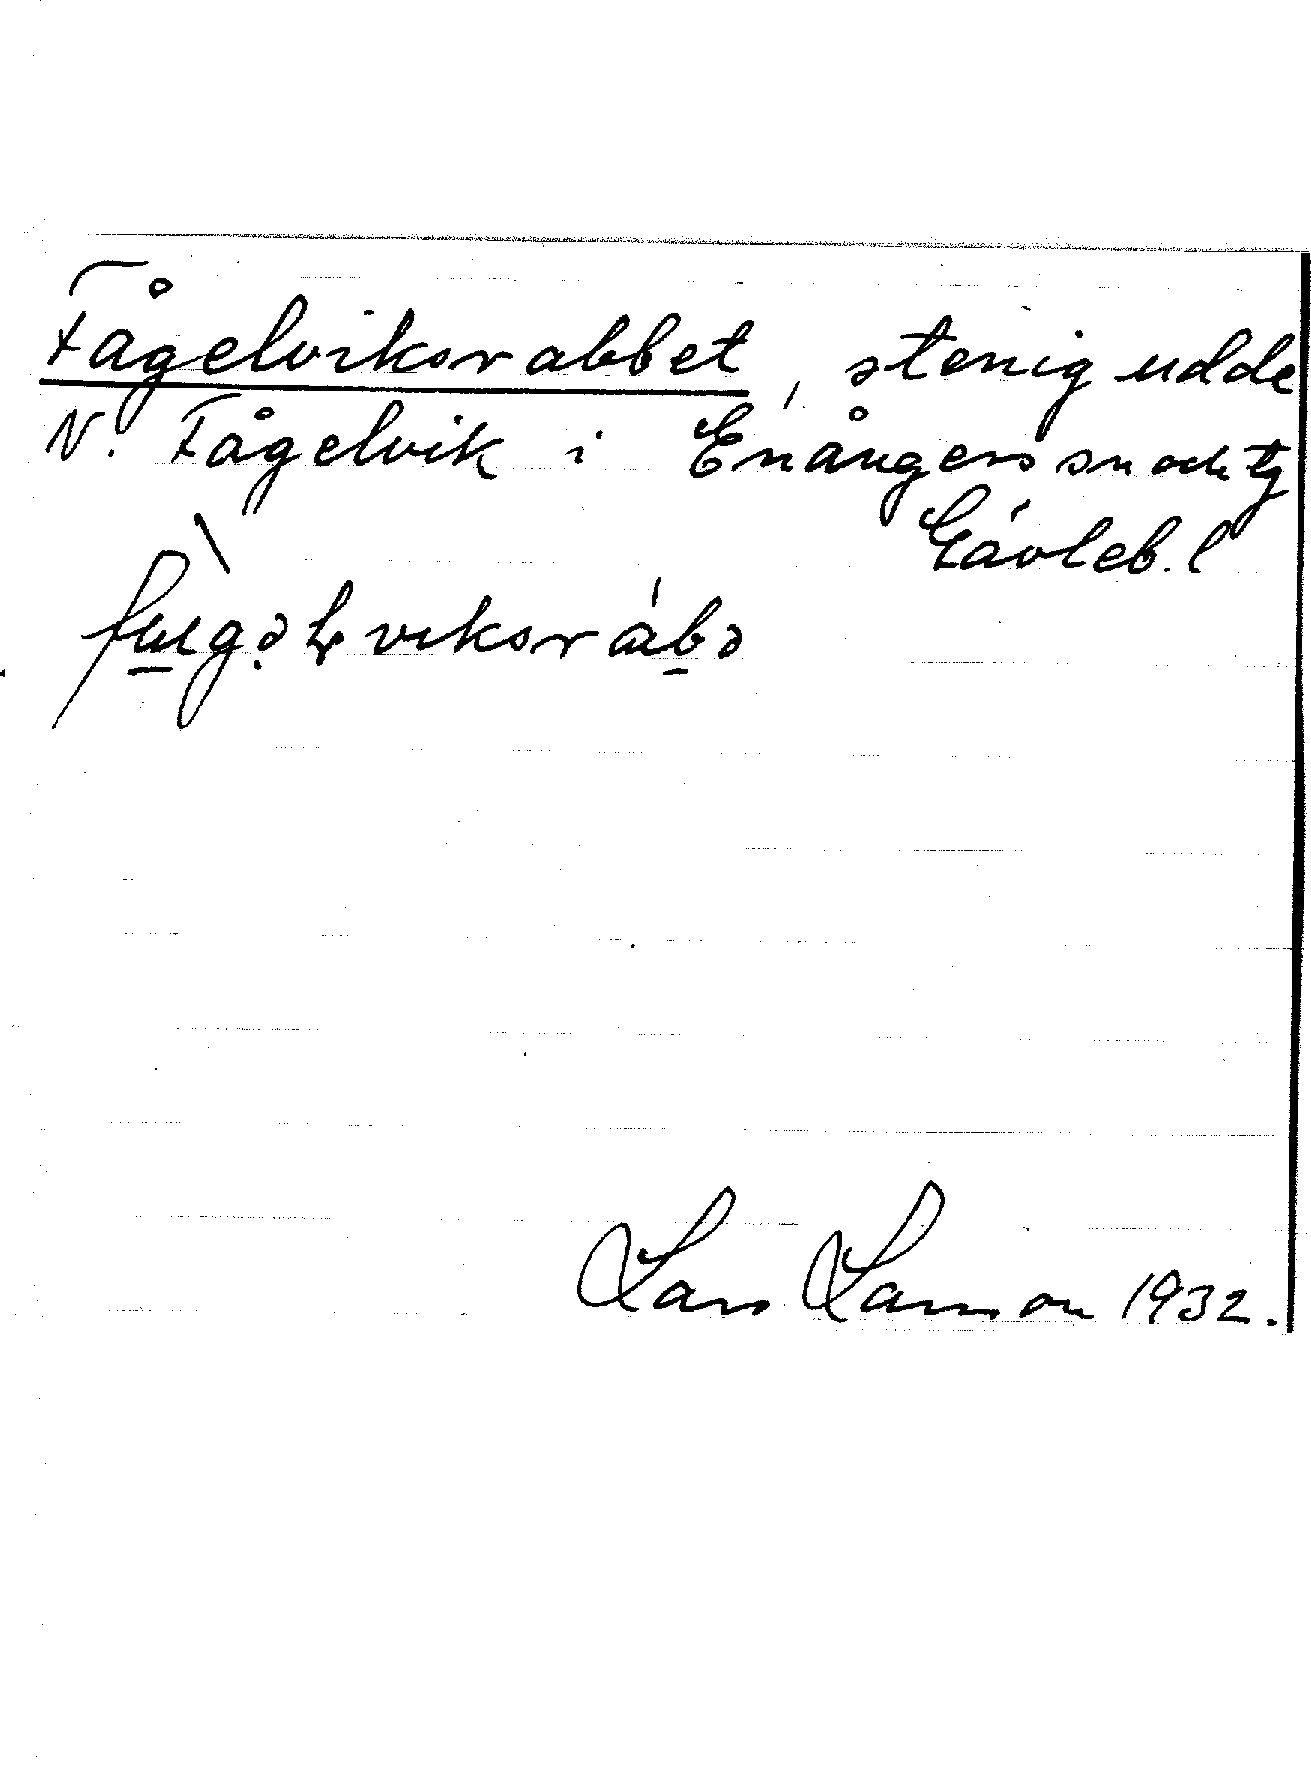 Fågelviksrabbet, stenig udde
N. Fågelvik i Enångers sn och tg
Gävleb. l
Lars Larsson 1932.